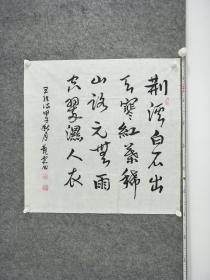 荊溪白石出
天寒紅葉稀
山路元無雨
空翠濕人衣
王維詩